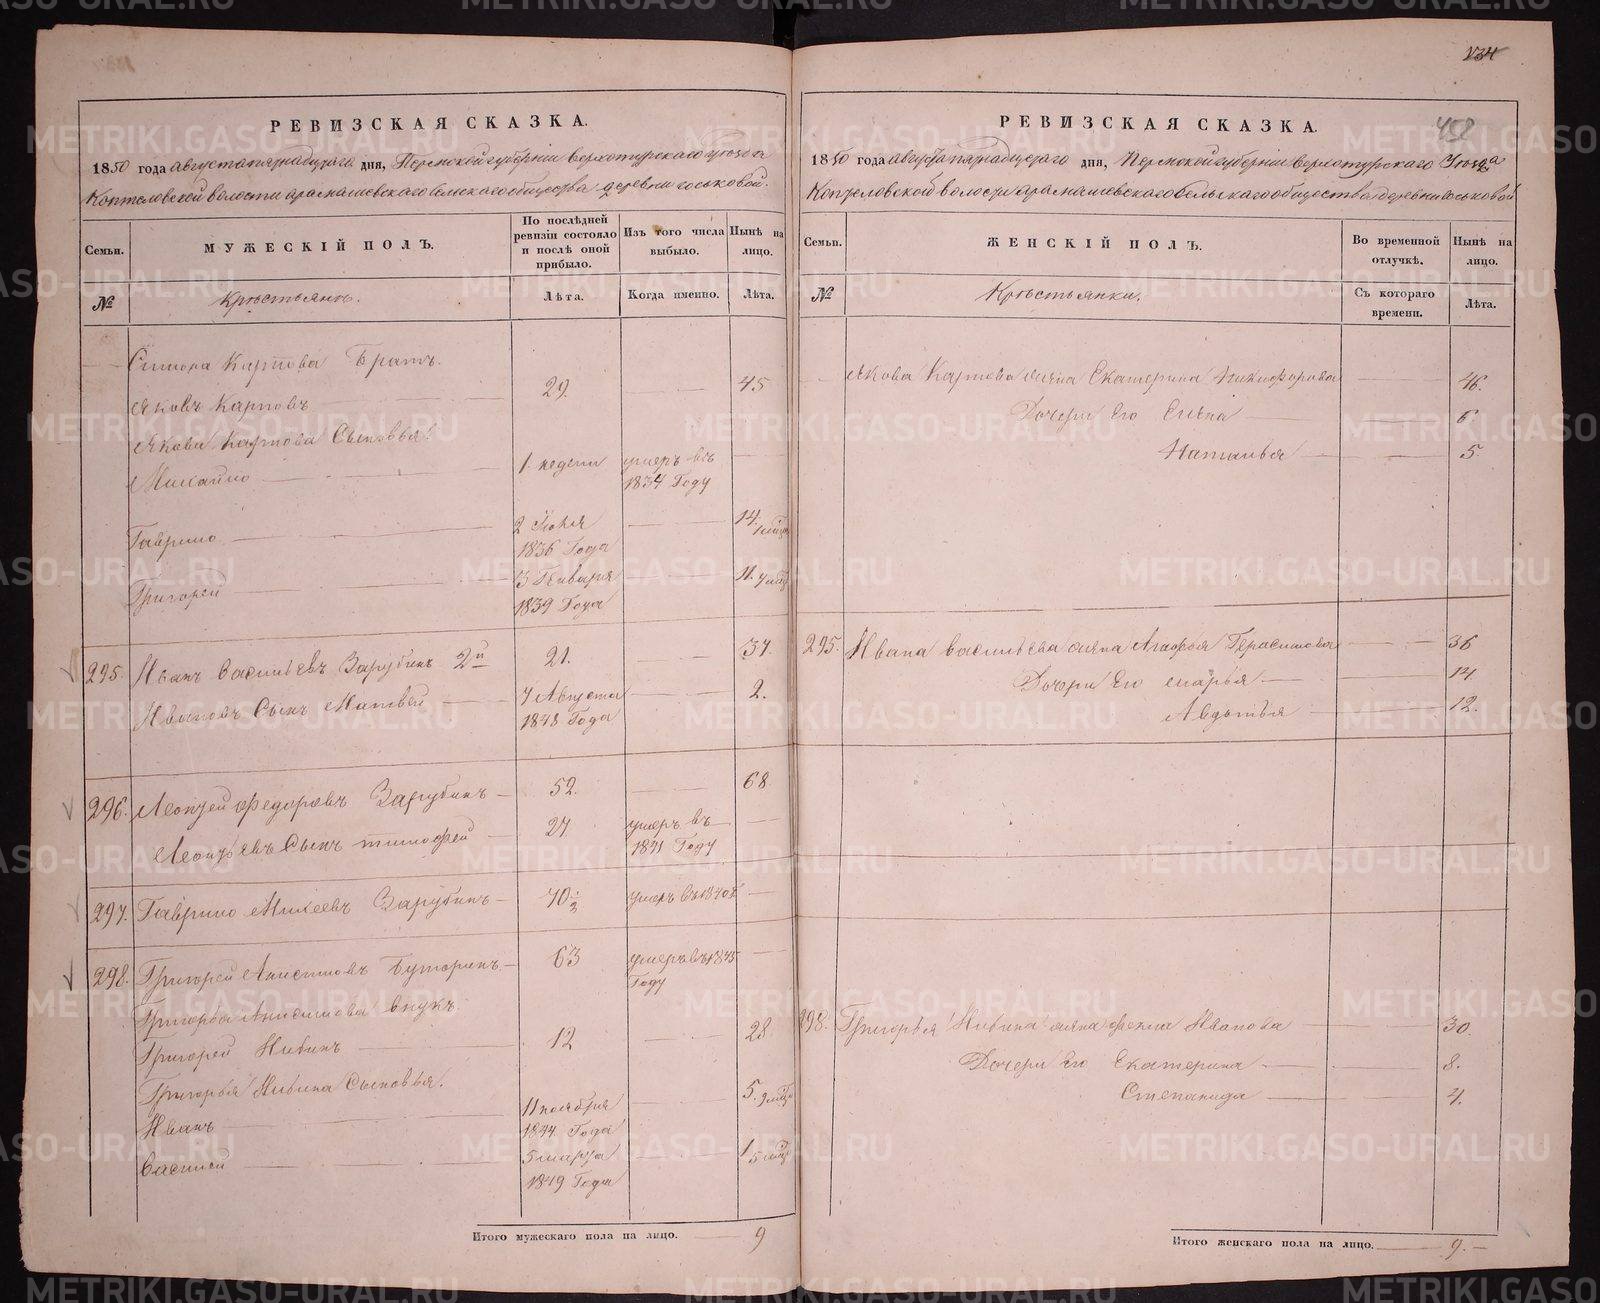 134
458
РЕВИЗСКАЯ СКАЗКА.
1850 года августа пятнадцатого дня, Пермской губернии верхотурского уезда
Коптеловской волости арамашевского сельского общества деревни
По послѣдней ревизіи состояло и послѣ оной прибыло.
Изъ того числа выбыло.
Нынѣ на лицо.
Семьи.
МУЖЕСКІЙ ПОЛЪ.
№
Крестьянъ.
Лѣта.
Когда именно.
Лѣта.
Карпова Братъ.
Яковъ Карповъ 29. 45
Якова Карпова Сыновья:
Михайло 1 недели умеръ въ 1834 Году
Гаврило 2 1836 Года 14.
Григорей 3 Генваря 1839 Года 11.
295. Иванъ Васильевъ Зарубинъ 2й 21. 37.
Ивановъ Сынъ Матвей 7 Августа 1848 Года 2.
296. Леонтей Федоровъ Зарубинъ 52. 68
Леонтьевъ Сынъ тимофей 27 умеръ въ 1841 Году
297. Гаврило Михеевъ Зарубинъ умеръ въ 1840
298. Григорей Анисимовъ Буторинъ 63 умеръ въ 1845 Году
Григорья Анисимова внукъ
Григорей 12 28
Григорья Сыновья.
Иванъ 11 ноября 1844 Года 5.
Василей 5 марта 1849 Года 1
Итого мужескаго пола на лицо. 9
РЕВИЗСКАЯ СКАЗКА.
1850 года августа пятнадцатого дня, Пермской губернии верхотурского Уезда
Коптеловской волости арамашевского сельского общества деревни
Семьи.
ЖЕНСКІЙ ПОЛЪ.
Во временной отлучкѣ.
Нынѣ на лицо.
№
Крестьянки.
Съ котораго времени.
Лѣта.
Якова Карпова жена Екатерина Никифорова 46.
Дочери Его 6
Наталья 5.
295. Ивана васильева жена Агафья Герасимова 36
Дочери Его марья 14
Авдотья 12.
298. Григорья жена Иванова 30.
Дочери Его Екатерина 8.
Степанида 4.
Итого женскаго пола на лицо. 9.
METRIKI.GASO-URAL.RU